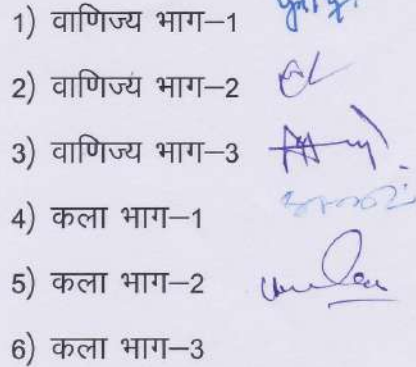 1) वाणिज्य भाग–1
2) वाणिज्य भाग–2
3) वाणिज्य भाग–3
4) कला भाग–1
5) कला भाग–2
6) कला भाग–3